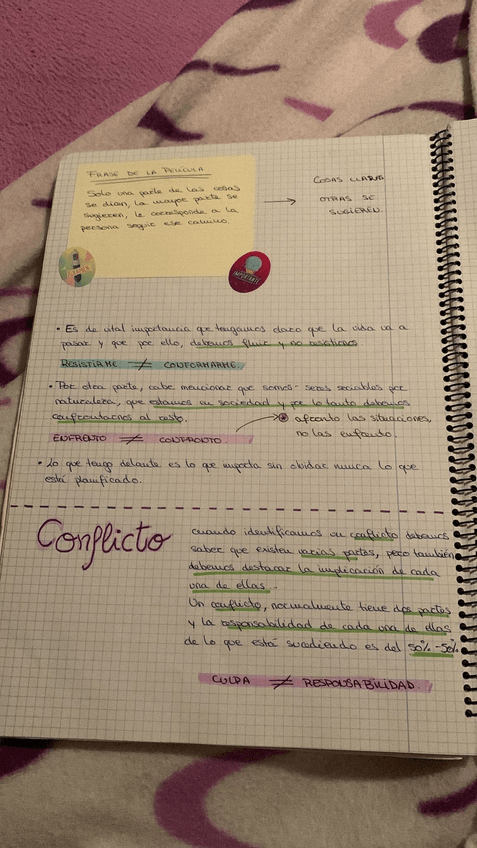 FRASE DE LA PELÍCULA
Solo una parte de las cosas
se dicen, la mayor parte se
sugieren, le corresponde a la
persona seguir ese camino.
COSAS CLARAS
OTRAS SE
SUGIEREN
IMPORTANTE
• Es de vital importancia que tengamos claro que la vida va a
pasar y que por ello, debemos fluir y no resistirnos
RESISTIRME ≠ CONFORMARME.
• Por otra parte, cabe mencionar que somos seres sociables por
naturaleza, que estamos en sociedad y por lo tanto debemos
confrontarnos al resto.
afronto las situaciones,
no las enfrento.
ENFRENTO ≠ CONFRONTO.
• Lo que tengo delante es lo que importa sin olvidar nunca lo que
está planificado.
Conflicto
cuando identificamos un conflicto debemos
saber que existen varias partes, pero también
debemos destacar la implicación de cada
una de ellas.
Un conflicto, normalmente tiene dos partes
y la responsabilidad de cada una de ellas
de lo que está sucediendo es del 50% - 50%.
CULPA ≠ RESPONSABILIDAD.